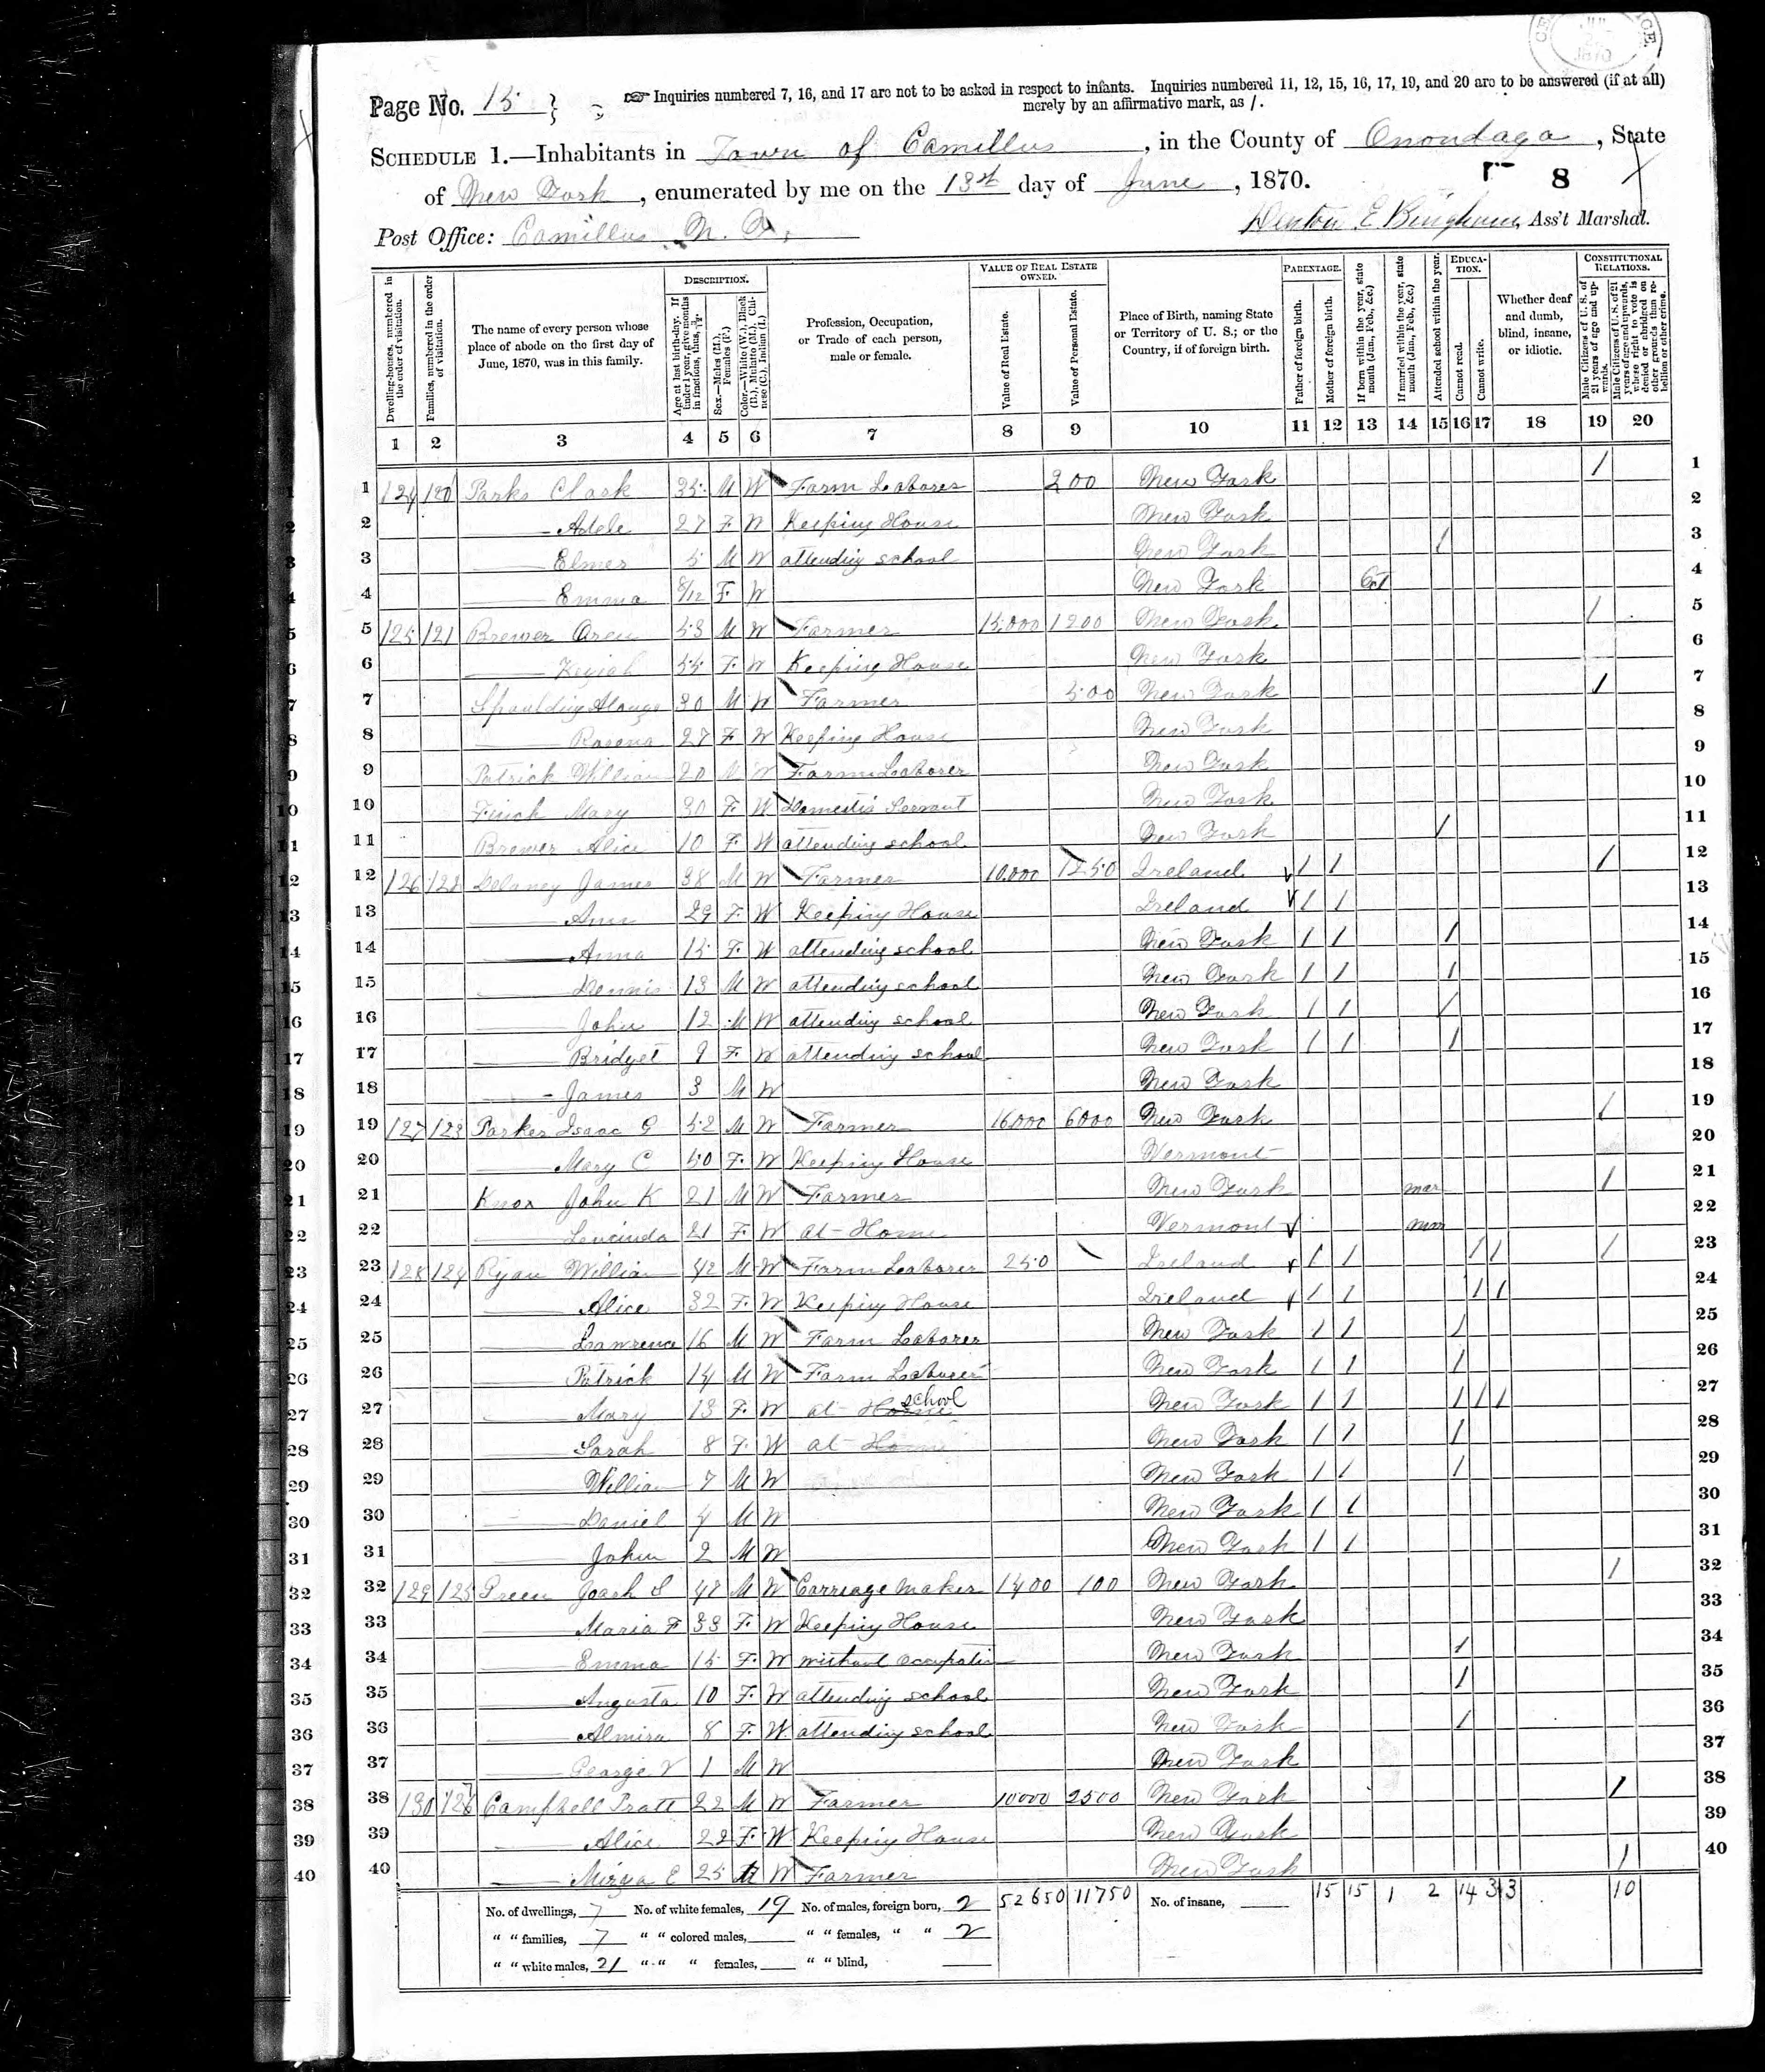 Page No. 15
☞ Inquiries numbered 7, 16, and 17 are not to be asked in respect to infants. Inquiries numbered 11, 12, 15, 16, 17, 19, and 20 are to be answered (if at all)
merely by an affirmative mark, as /.
SCHEDULE 1.—Inhabitants in Town of Camillus, in the County of Onondaga, State
of New York, enumerated by me on the 13th day of June, 1870.
8
Post Office: Camillus N. Y.
Denton E Bingham, Ass't Marshal.
Dwelling-houses, numbered in the order of visitation.
Families, numbered in the order of visitation.
The name of every person whose place of abode on the first day of June, 1870, was in this family.
DESCRIPTION.
Age at last birth-day. If under 1 year, give months in fractions, thus, 3/12
Sex.—Males (M.), Females (F.)
Color.—White (W.), Black (B.), Mulatto (M.), Chinese (C.), Indian (I.)
Profession, Occupation, or Trade of each person, male or female.
VALUE OF REAL ESTATE OWNED.
Value of Real Estate.
Value of Personal Estate.
Place of Birth, naming State or Territory of U. S.; or the Country, if of foreign birth.
PARENTAGE.
Father of foreign birth.
Mother of foreign birth.
If born within the year, state month (Jan., Feb., &c.)
If married within the year, state month (Jan., Feb., &c.)
Attended school within the year.
EDUCATION.
Cannot read.
Cannot write.
Whether deaf and dumb, blind, insane, or idiotic.
CONSTITUTIONAL RELATIONS.
Male Citizens of U. S. of 21 years of age and upwards.
Male Citizens of U. S. of 21 years of age and upwards, whose right to vote is denied or abridged on other grounds than rebellion or other crime.
1 2 3 4 5 6 7 8 9 10 11 12 13 14 15 16 17 18 19 20
1 124 120 Parks Clark 35 M W Farm Laborer 200 New York / 1
2 Adele 27 F W Keeping House New York 2
3 Elmer 5 M W attending school New York / 3
4 Emma 8/12 F W New York Oct 4
5 125 121 Brewer Oren 53 M W Farmer 15,000 1200 New York / 5
6 Keziah 55 F W Keeping House New York 6
7 Spaulding Alonzo 30 M W Farmer 500 New York / 7
8 27 F W Keeping House New York 8
9 Patrick William 20 M W Farm Laborer New York 9
10 Finch Mary 30 F W Domestic Servant New York 10
11 Brewer Alice 10 F W attending school New York / 11
12 126 122 Delaney James 38 M W Farmer 10,000 1250 Ireland / / / 12
13 Ann 29 F W Keeping House Ireland / / 13
14 Anna 15 F W attending school New York / / / 14
15 Dennis 13 M W attending school New York / / / 15
16 John 12 M W attending school New York / / / 16
17 Bridget 9 F W attending school New York / / / 17
18 James 3 M W New York 18
19 127 123 Parker Isaac G 52 M W Farmer 16,000 6000 New York / 19
20 Mary C 50 F W Keeping House Vermont 20
21 Knox John K 21 M W Farmer New York mar / 21
22 Lucinda 21 F W at Home Vermont mar 22
23 128 124 Ryan William 42 M W Farm Laborer 250 Ireland / / / / / 23
24 Alice 32 F W Keeping House Ireland / / / / 24
25 Lawrence 16 M W Farm Laborer New York / / / 25
26 Patrick 14 M W Farm Laborer New York / / / 26
27 Mary 13 F W at Home school New York / / / / / 27
28 Sarah 8 F W at Home New York / / / 28
29 William 7 M W New York / / / 29
30 Daniel 4 M W New York / / 30
31 John 2 M W New York / / 31
32 129 125 Green Joash S 48 M W Carriage Maker 1400 100 New York / 32
33 Maria F 33 F W Keeping House New York 33
34 Emma 15 F W without occupation New York / 34
35 Augusta 10 F W attending school New York / 35
36 Almira 8 F W attending school New York / 36
37 George V 1 M W New York 37
38 130 126 Campbell Pratt 22 M W Farmer 10000 2500 New York / 38
39 Alice 22 F W Keeping House New York 39
40 E 25 M W Farmer New York / 40
No. of dwellings, 7 No. of white females, 19 No. of males, foreign born, 2 52650 11750 No. of insane, 15 15 1 2 14 3 3 10
" " families, 7 " " colored males, " " females, " " 2
" " white males, 21 " " " females, " " blind,